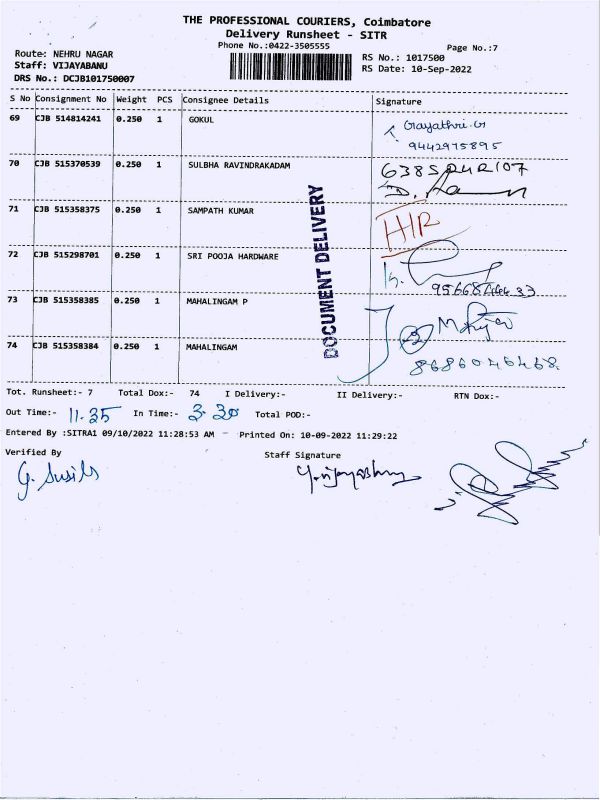 THE PROFESSIONAL COURIERS, Coimbatore
Delivery Runsheet - SITR
Phone No.:0422-3505555
Page No.:7
Route: NEHRU NAGAR
Staff: VIJAYABANU
DRS No.: DCJB101750007
RS No.: 1017500
RS Date: 10-Sep-2022
S No Consignment No Weight PCS Consignee Details Signature
69 CJB 514814241 0.250 1 GOKUL Gayathri.G
9442975895
70 CJB 515370539 0.250 1 SULBHA RAVINDRAKADAM
71 CJB 515358375 0.250 1 SAMPATH KUMAR H/R
72 CJB 515298701 0.250 1 SRI POOJA HARDWARE
73 CJB 515358385 0.250 1 MAHALINGAM P
74 CJB 515358384 0.250 1 MAHALINGAM
DOCUMENT DELIVERY
Tot. Runsheet:- 7 Total Dox:- 74 I Delivery:- II Delivery:- RTN Dox:-
Out Time:- 11.35 In Time:- 3.30 Total POD:-
Entered By :SITRA1 09/10/2022 11:28:53 AM - Printed On: 10-09-2022 11:29:22
Verified By Staff Signature